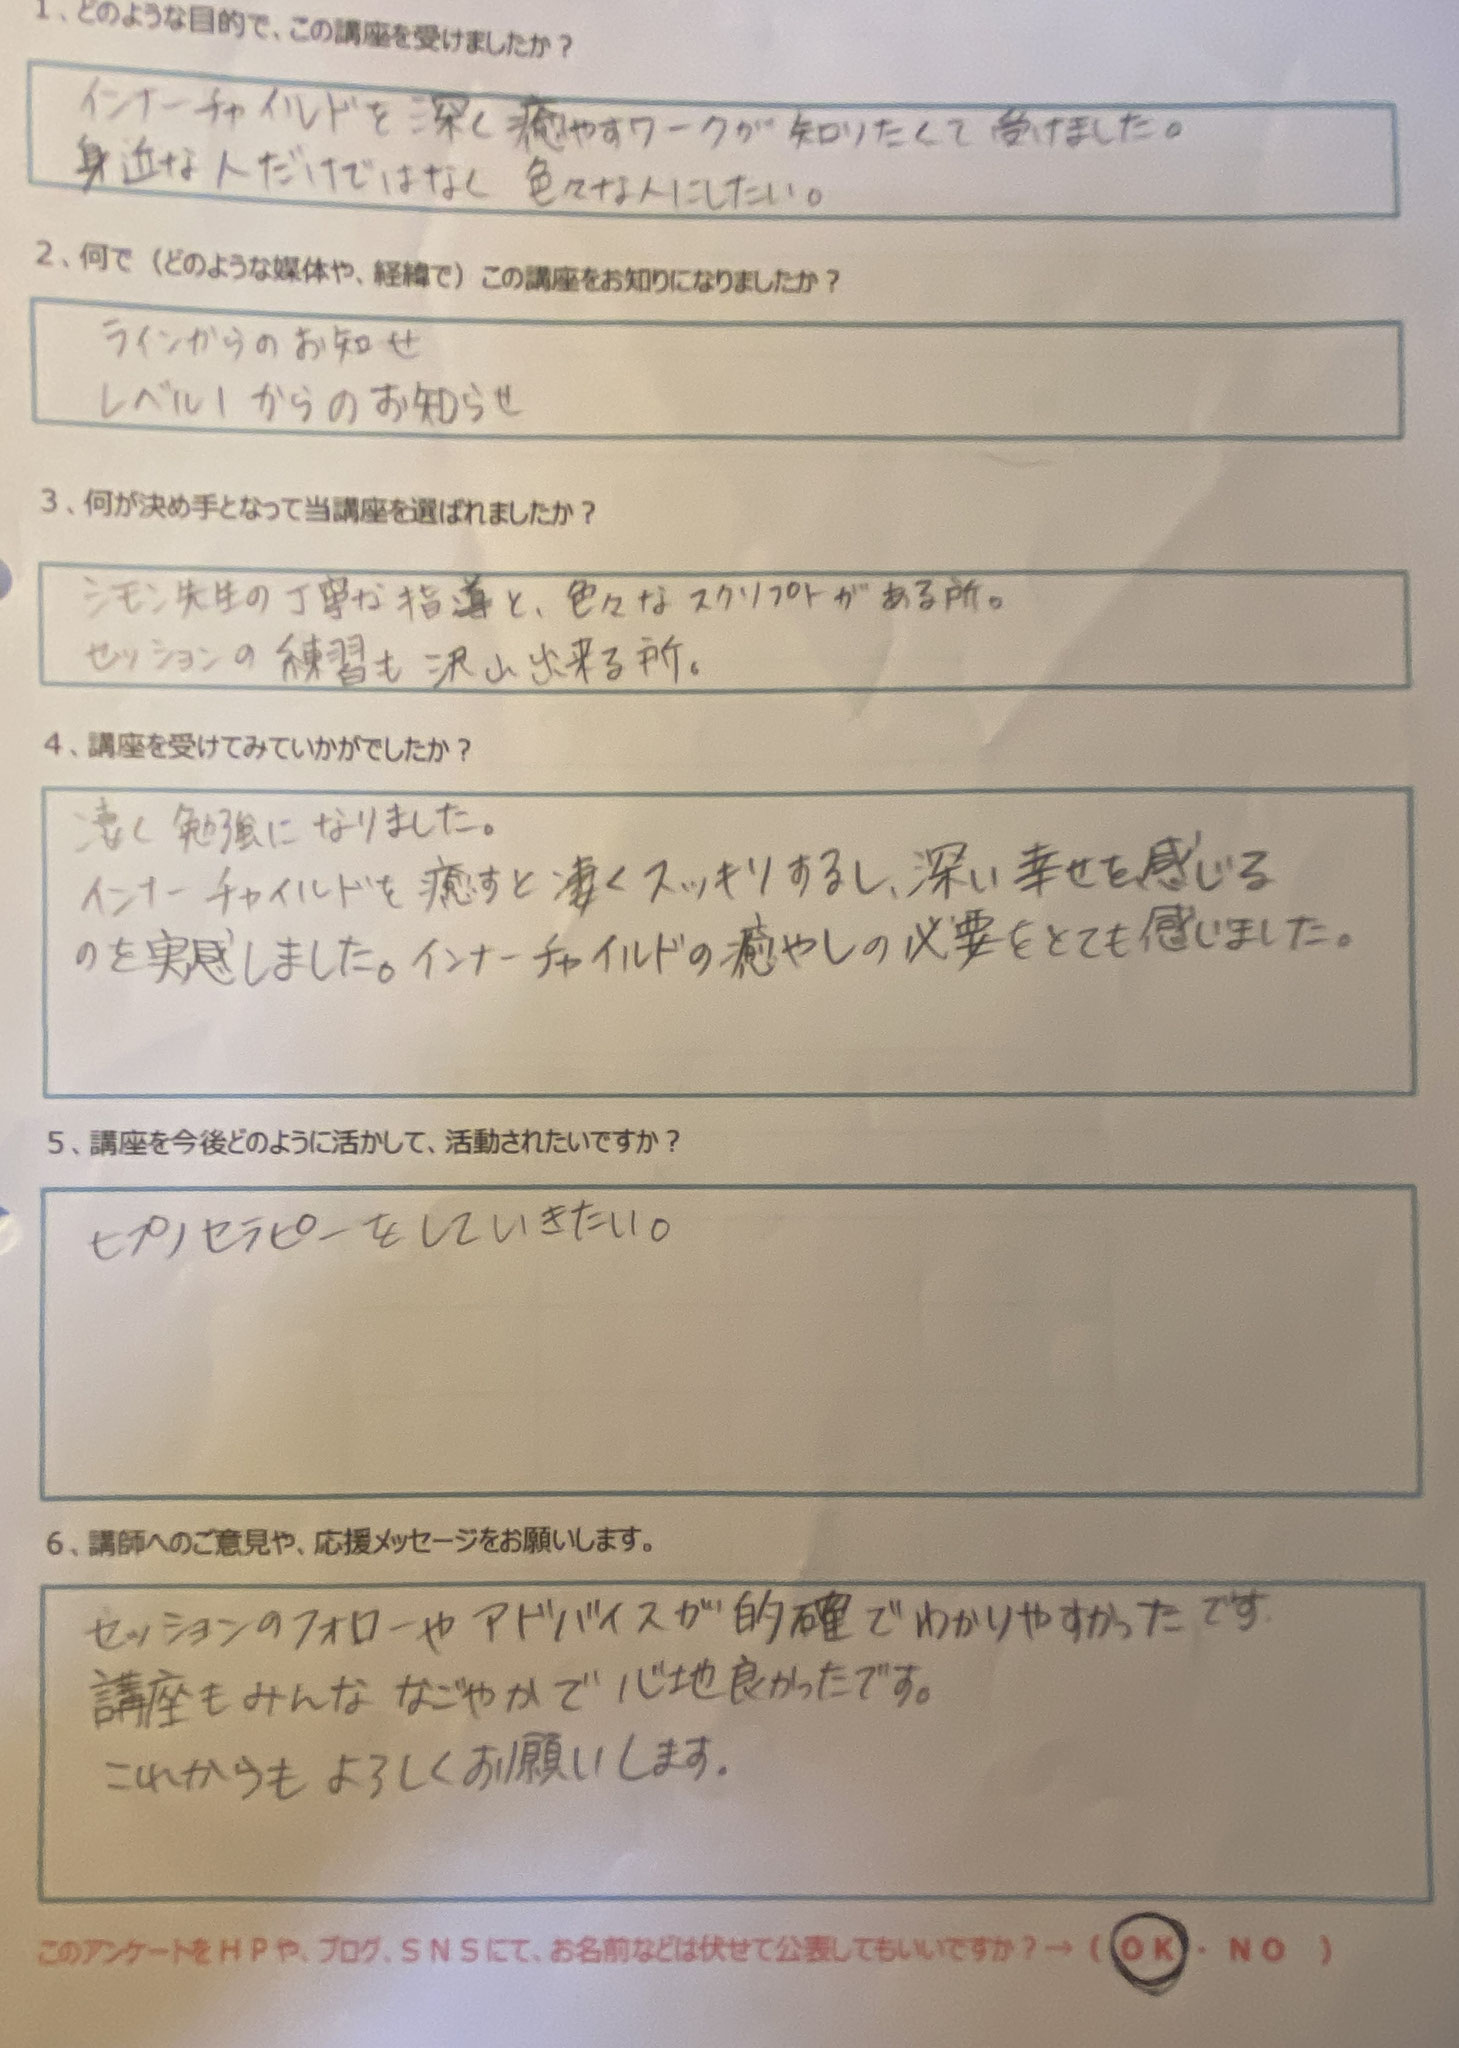 1、どのような目的で、この講座を受けましたか？
インナーチャイルドを深く癒やすワークが知りたくて受けました。
身近な人だけではなく色々な人にしたい。
2、何で（どのような媒体や、経緯で）この講座をお知りになりましたか？
ラインからのお知せ
レベル1からのお知らせ
3、何が決め手となって当講座を選ばれましたか？
シモン先生の丁寧な指導と、色々なスクリプトがある所。
セッションの練習も沢山出来る所。
4、講座を受けてみていかがでしたか？
凄く勉強になりました。
インナーチャイルドを癒すと凄くスッキリするし、深い幸せを感じる
のを実感しました。インナーチャイルドの癒やしの必要をとても感じました。
5、講座を今後どのように活かして、活動されたいですか？
ヒプノセラピーをしていきたい。
6、講師へのご意見や、応援メッセージをお願いします。
セッションのフォローやアドバイスが的確でわかりやすかったです
講座もみんななごやかで心地良かったです。
これからもよろしくお願いします。
このアンケートをHPや、ブログ、SNSにて、お名前などは伏せて公表してもいいですか？→（OK・NO）